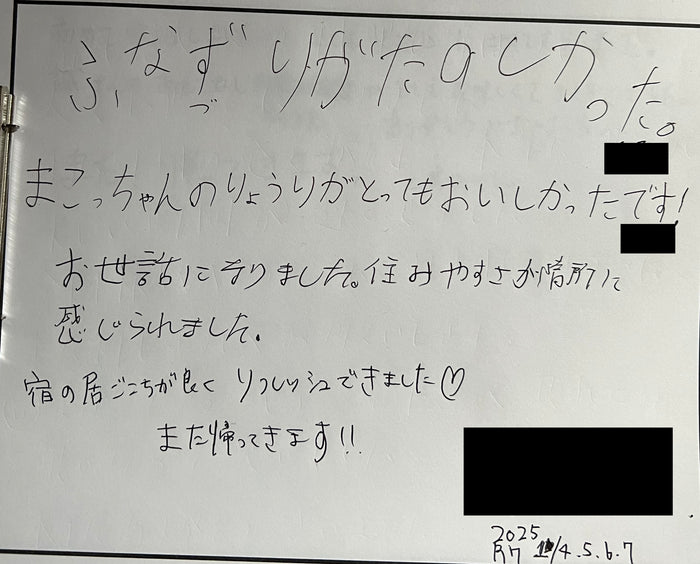 ふなずりがたのしかった。
づ
まこっちゃんのりょうりがとってもおいしかったです!
お世話になりました。住みやすさが随所に
感じられました。
宿の居ごこちが良く リフレッシュできました♡
また帰ってきます!!
2025
R7 /4.5.6.7